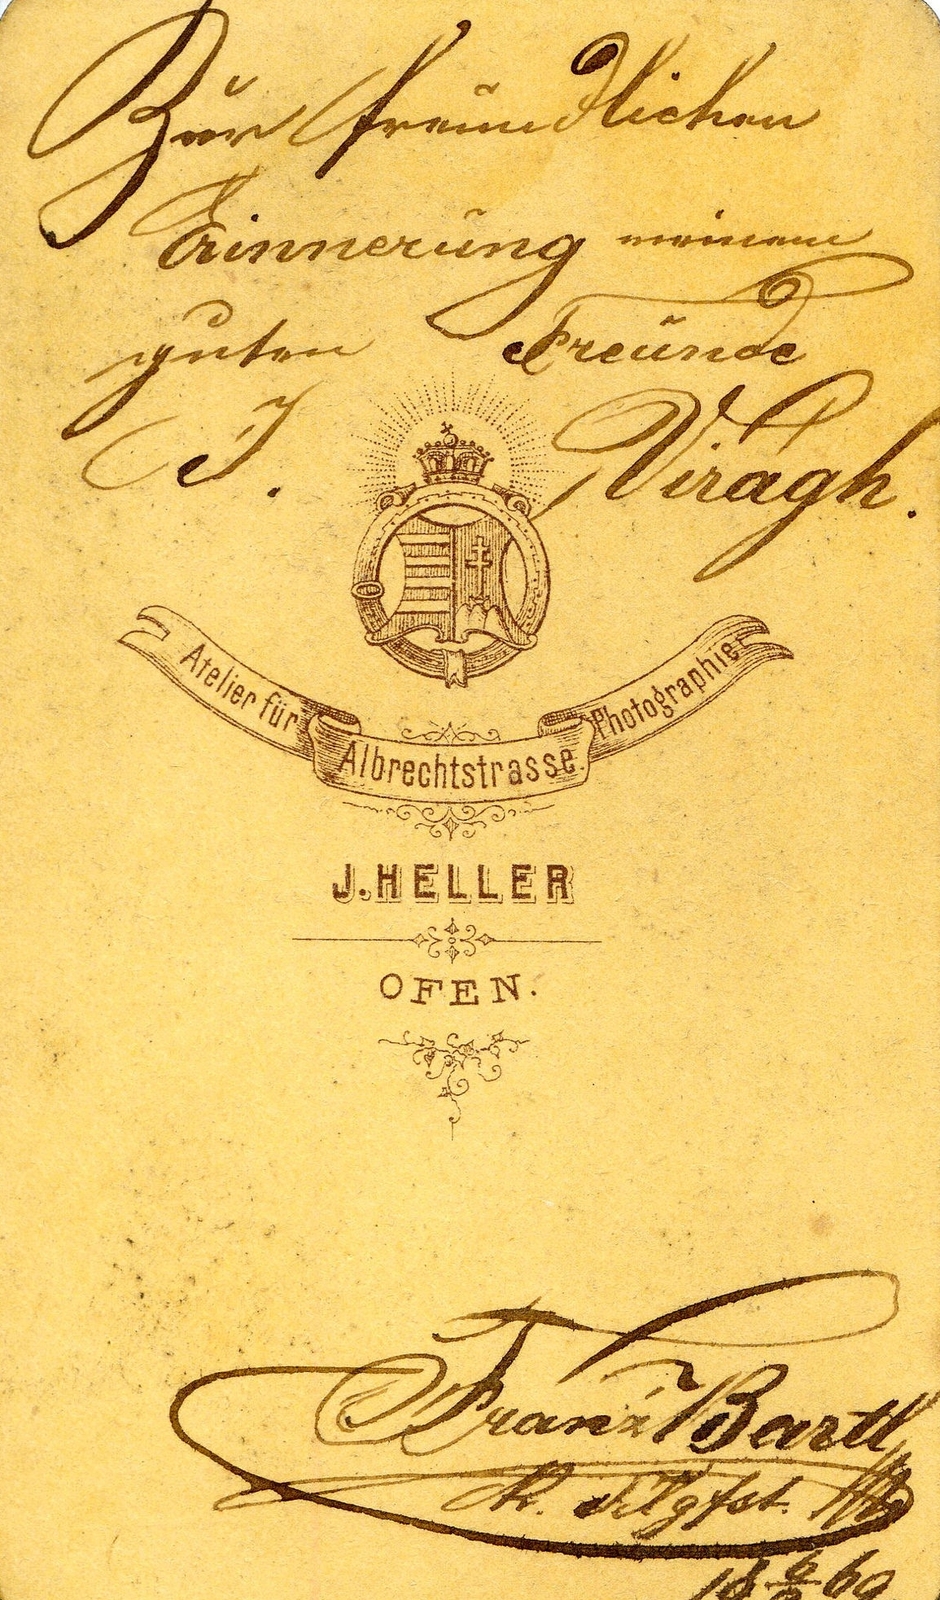 Zur freundlichen
Erinnerung meinem
guten Freunde
J. Viràgh.
Atelier für Photographie
Albrechtstrasse.
J. HELLER
OFEN.
Franz Bartl
18 69